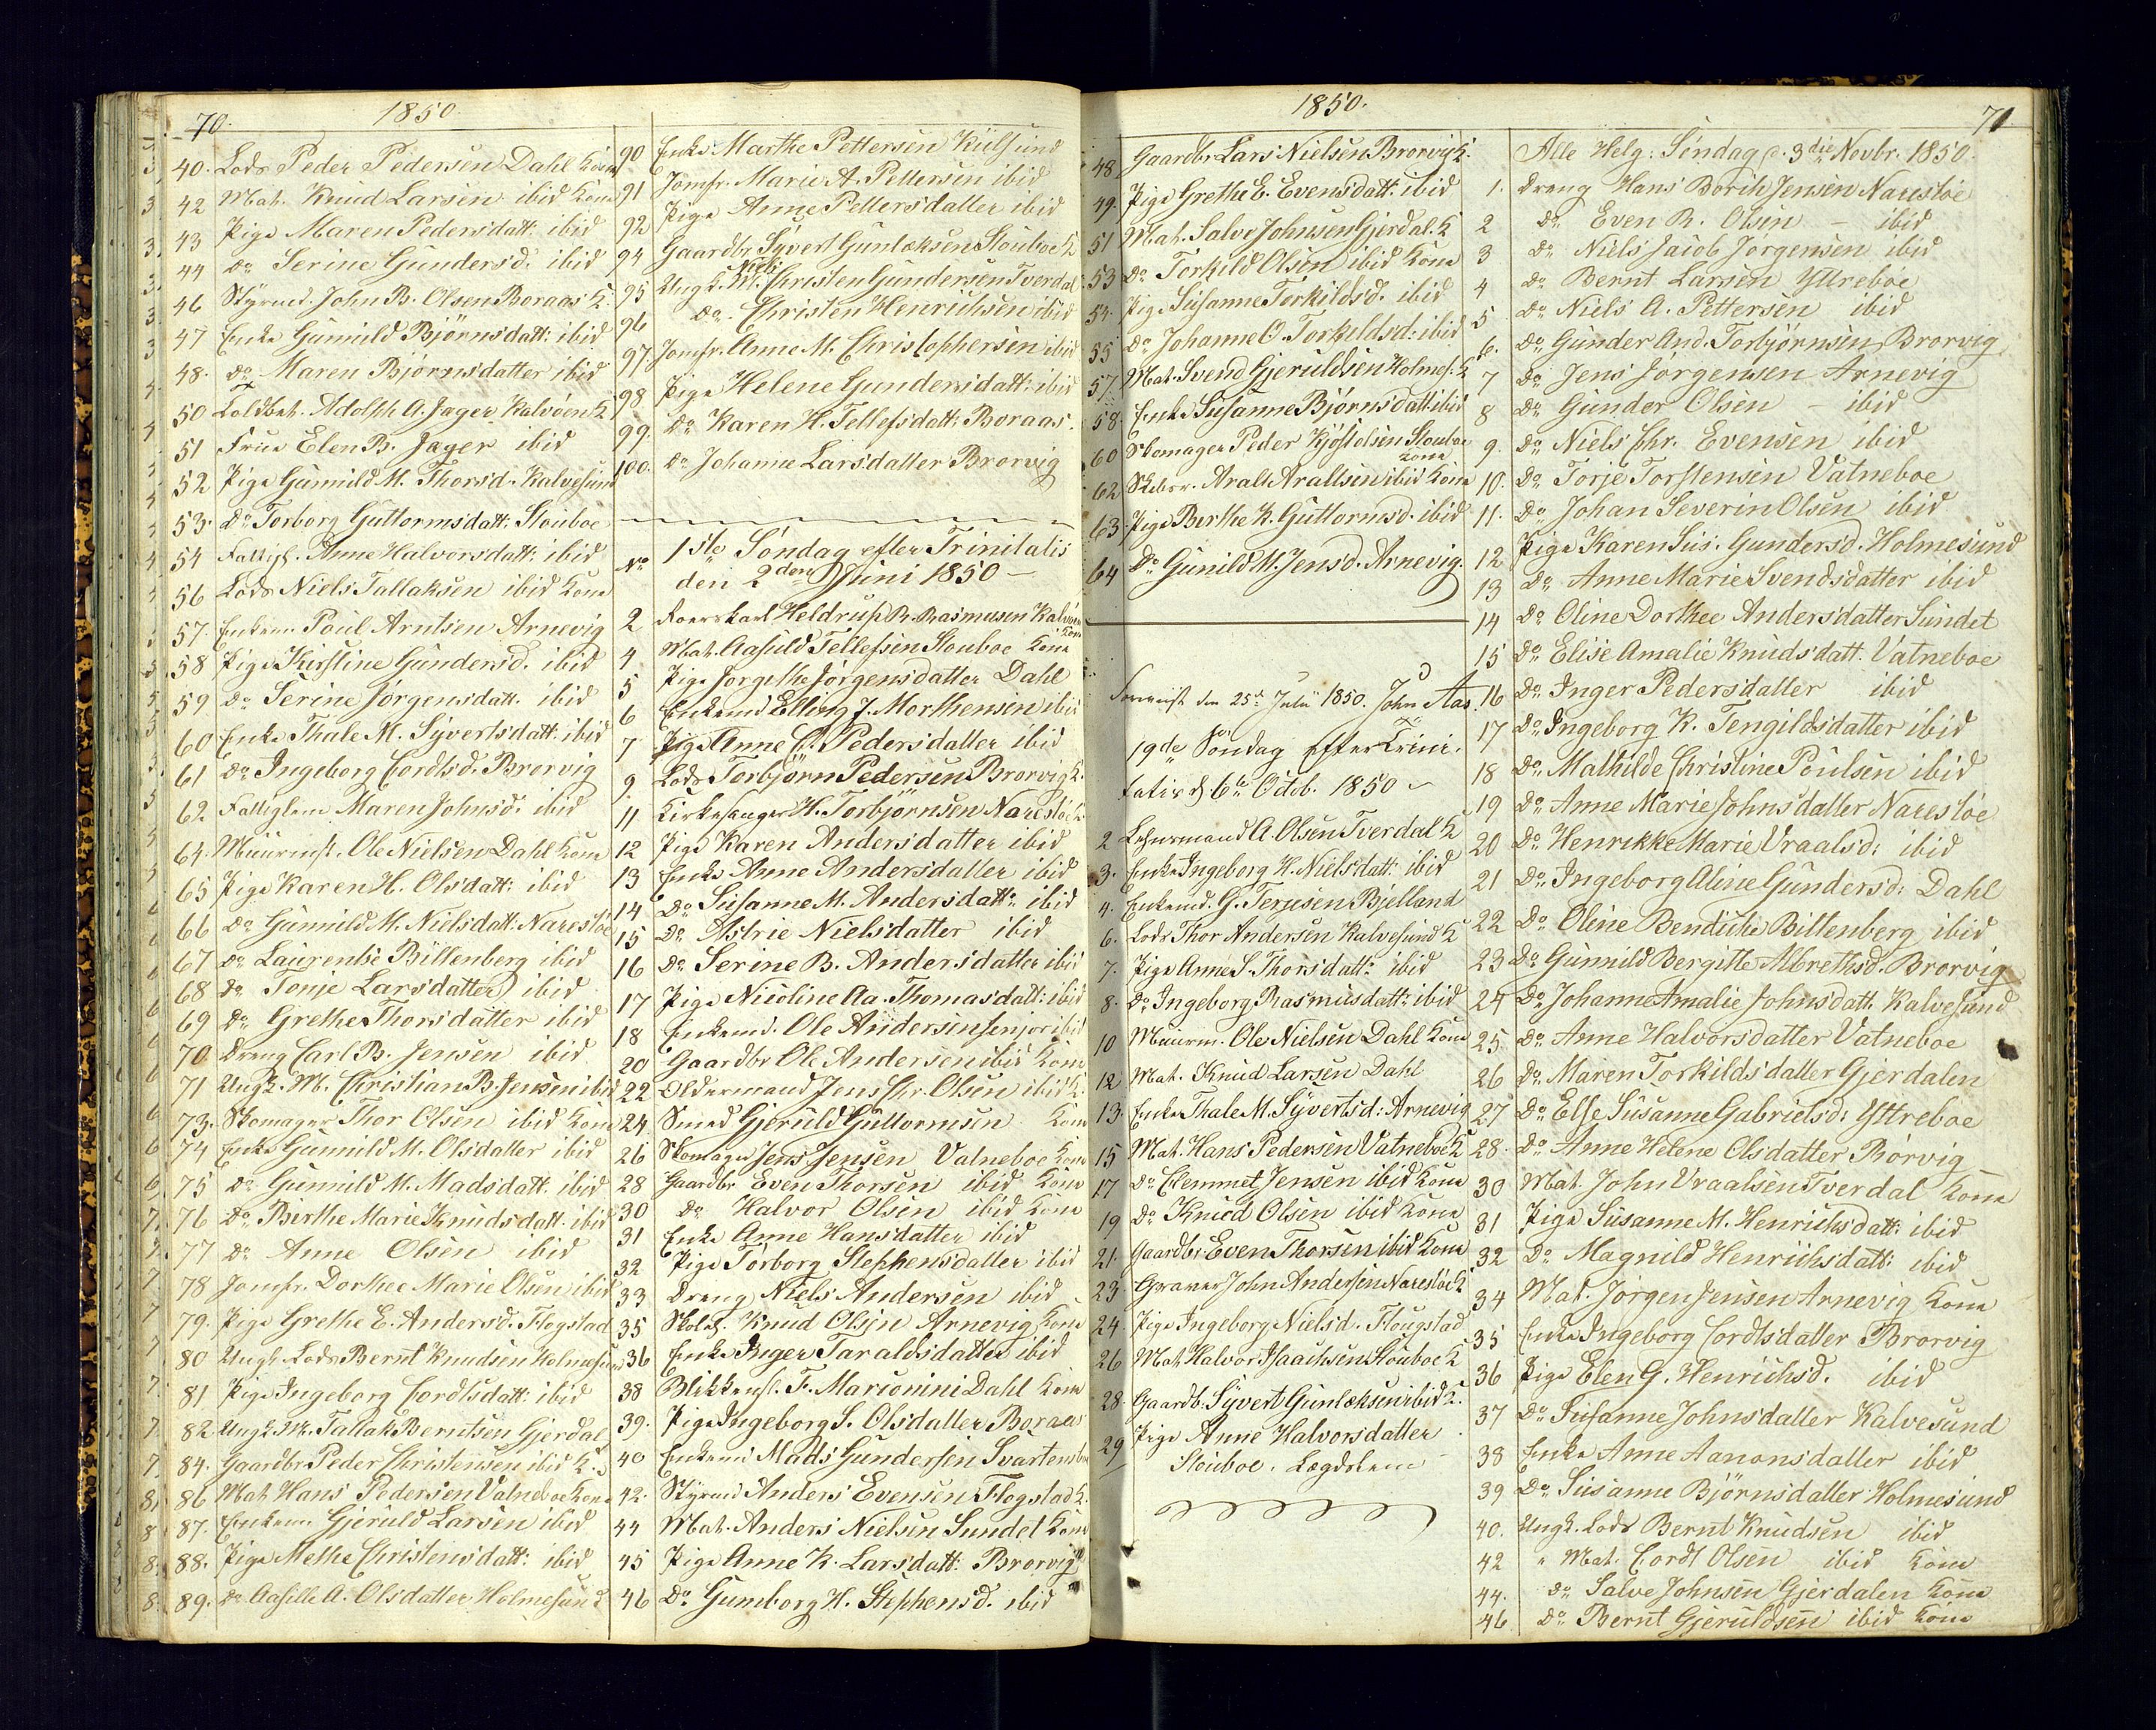 70.
1850.
40. Lods Peder Pedersen Dahl Kona
42 Mat. Knud Larsen ibid Kona
43 Pige Maren Pedersdatt: ibid
44 do Serine Gundersd. ibid
46 Styrmd. John B. Olsen Boraas K.
47 Enke Gunnild Bjørnsdatt: ibid
48. do Maren Bjørnsdatter ibid
50 Toldbet. Adolph A. Jager Kalvøen K
51 Frue Elen B. Jager ibid
52 Pige Gunnild M. Thorsd. Kalvesund
53. Do Torborg Guttormsdatt: Stouboe
54 Fattigl. Anne Halvorsdatt: ibid
56 Lods Niels Tallaksen ibid Kona
57. Enkem. Poul Arntsen Arnevig
58 Pige Kirstine Gundersd. ibid
59 do Serine Jørgensdatt. ibid
60 Enke Thale M. Syvertsdatt: ibid
61 do Ingeborg Cordtsd. Brorvig
62. Fattiglem Maren Johnsd. ibid
64. Muurmst. Ole Nielsen Dahl Kona
65 Pige Karen H. Olsdatt: ibid
66 do Gunnild M. Nielsdatt: Narestøe
67 do Laurentse Billenberg ibid
68 do Tonje Larsdatter ibid
69 do Grethe Thorsdatter ibid
70. Dreng Carl B. Jensen ibid
71 Ungk. M. Christian B. Jensen ibid
73. Skomager Thor Olsen ibid Kona
74 Enke Gunnild M. Olsdatter ibid
75 do Gunnild M. Madsdatt. ibid
76 do Birthe Marie Knudsdatt. ibid
77 do Anne Olsen ibid
78 Jomfr. Dorthee Marie Olsen ibid
79. Pige Grethe E. Andersd. Flogstad
80 Ungk. Lods Bernt Knudsen Holmesund
81 Pige Ingeborg Cordtsdatt: ibid
82. Ungk. M. Tallak Berntsen Gjerdal
84. Gaardbr Peder Christensen ibid K.
86 Mat. Hans Pedersen Vatneboe Kona
87. Enkem. Gjeruld Larsen ibid
88. Pige Methe Christensdatt: ibid
89. do Aaselle A. Olsdatter Holmesund
90 Enke Marthe Pettersen Kulsund
91 Jomfr. Marie A. Pettersen ibid
92 Pige Anne Pettersdatter ibid
94 Gaardbr. Syvert Gunlaksen Stouboe K
95 Ungk. M. Christen Gundersen Tverdal
96 do. Christen Henrichsen ibid
97. Jomfr. Anne M. Christophersen ibid
98 Pige Helene Gundersdatt: ibid
99. do Karen H. Tellefsdatt: Boraas.
100. do Johanne Larsdatter Brorvig
1ste Søndag efter Trinitatis
No den 2den Juni 1850 –
2 Roerskarl Heldrup R. Rasmusen Kalvøen Kona
4 Mat. Aasuld Tellefsen Stouboe Kona
5 Pige Jorgethe Jørgensdatter Dahl
6 Enkemd Elling J. Morthensen ibid
7 Pige Anne C. Pedersdatter ibid
9 Lods Torbjørn Pedersen Brorvig K.
11 Kirkesanger H. Torbjørnsen Narestøe K
12 Pige Karen Andersdatter ibid
13 Enke Anne Andersdatter ibid
14 Do Susanne M. Andersdatt: ibid
15 Do Astrie Nielsdatter ibid
16 Do Serine B. Andersdatter ibid
17 Pige Nicoline Aa. Thomasdatt: ibid
18 Enkemd. Ole Andersen senior ibid
20 Gaardbr Ole Andersen ibid Kona
22 Oldermand Jens Chr. Olsen ibid K.
24. Smed Gjeruld Guttormsen Kona
26 Skomager Jens Jensen Vatneboe Kona
28 Gaardbr Even Thorsen ibid Kona
30 do Halvor Olsen ibid Kona
31 Enke Anne Hansdatter ibid
32 Pige Torborg Stephensdatter ibid
33 Dreng Niels Andersen ibid
35 Skolel. Knud Olsen Arnevig Kona
36 Enke Inger Taraldsdatter ibid
38 Blikkensl. F. Marconini Dahl Kona
39. Pige Ingeborg S. Olsdatter Boraas
40 Enkemd Mads Gundersen
42. Styrmd Anders Evensen Flogstad K.
44 Mat. Anders Nielsen Sundet Kona
45 Pige Anne K. Larsdatt: Brorvig
46 Do Gumborg H. Stephensd. ibid
1850.
71
48 Gaardbr Lars Nielsen Brorvig K.
49. Pige Grethe E. Evensdatt. ibid
51 Mat. Salve Johnsen Gjerdal. K
53 Do Torkild Olsen ibid Kona
54. Pige Susanne Torkildsd. ibid
55 do Johanne O. Torkildsd: ibid
57. Mat. Svend Gjeruldsen Holmes. K
58. Enke Susanne Bjørnsdatt ibid
60 Skomager Peder Kjøstolsen Stouboe Kona
62 Aralt Araltsen ibid Kona
63. Pige Berthe K. Guttormsd. ibid
64 Do Gunild M. Jensd. Arnevig.
den 25de Julii 1850. John Aas.
19de Søndag efter Trini-
tatis d 6te Octob. 1850 –
2 Lehnsmand A. Olsen Tverdal K
3. Enke Ingeborg H. Nielsdatt: ibid
4. Enkemd. G. Terjesen Bjelland
6. Lods Thor Andersen Kalvesund K
7. Pige Anne S. Thorsdatt: ibid
8. Do Ingeborg Rasmusdatt: ibid
10 Muurm. Ole Nielsen Dahl Kona
12 Mat. Knud Larsen Dahl
13. Enke Thale M. Syvertsd: Arnevig
15 Mat. Hans Pedersen Vatneboe K
17 Do Clemmet Jensen ibid Kona
19 Do Knud Olsen ibid Kona
21. Gaardbr Even Thorsen ibid Kona
23. Graver John Andersen Narestøe K
24. Pige Ingeborg Nielsd. Flougstad
26 Mat. Halvor Isaachsen Stouboe K
28. Gaardb. Syvert Gunlæksen ibid K.
29 Pige Anne Halvorsdatter
Stouboe. Lægdslem
Alle Helg: Søndag d. 3die Novbr. 1850.
1. Dreng Hans Borith Jensen Narestøe
2 do Even R. Olsen – ibid
3 do Niels Jacob Jorgensen ibid
4 do Bernt Larsen Yttreboe
5 do Niels A. Pettersen ibid
6. do Gunder And. Torbjørnsen Brorvig
7 do Jens Jørgensen Arnevig
8 do Gunder Olsen – ibid
9. do Niels Chr. Evensen ibid
10. do Torje Torstensen Vatneboe
11. do Johan Severin Olsen ibid
12 Pige Karen Sus. Gundersd. Holmesund
13 do Anne Marie Svendsdatter ibid
14 do Oline Dorthee Andersdatter Sundet
15 do Elise Amalie Knudsdatt. Vatneboe
16 do Inger Pedersdatter ibid
17 do Ingeborg K. Tengildsdatter ibid
18 do Mathilde Christine Poulsen ibid
19 do Anne Marie Johnsdatter Narestøe
20 do Henrikke Marie Vraalsd: ibid
21 do Ingeborg Aline Gundersd: Dahl
22 do Oline Bendicte Billenberg ibid
23 do Gunnild Bergitte Albrethsd. Brorvig
24 do Johanne Amalie Johnsdatt. Kalvesund
25. do Anne Halvorsdatter Vatneboe
26 do Maren Torkildsdatter Gjerdalen
27 do Else Susanne Gabrielsd: Yttreboe
28. do Anne Helene Olsdatter Rørvig
30 Mat. John Vraalsen Tverdal Kona
31 Pige Susanne M. Henrichsdatt: ibid
32 do Magnild Henrichsdatt: ibid
34 Mat. Jørgen Jensen Arnevig Kona
35 Enke Ingeborg Cordtsdatter Brorvig
36 Pige Elen G. Henrichsd. ibid
37 do Susanne Johnsdatter Kalvesund
38 Enke Anne Aanonsdatter ibid
39 do Susanne Bjørnsdatter Holmesund
40. Ungk. Lods Bernt Knudsen ibid
42 " Mat. Cordt Olsen ibid Kona
44. do Salve Johnsen Gjerdalen Kona
46 do Bernt Gjeruldsen ibid Kona